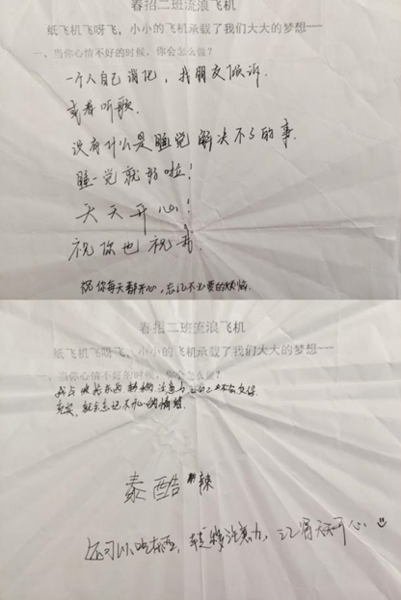 春招二班流浪飞机
纸飞机飞呀飞，小小的飞机承载了我们大大的梦想——
一、当你心情不好的时候，你会怎么做？
一个人自己消化，找朋友倾诉
或者听歌.
没有什么是睡觉解决不了的事.
睡一觉就好啦！
天天开心！
祝你也祝我.
祝你每天都开心，忘记不必要的烦恼.
春招二班流浪飞机
纸飞机飞呀飞，小小的飞机承载了我们大大的梦想——
一、当你心情不好的时候，你会怎么做？
转移注意力
充实，就会忘记不开心的情绪.
泰酷辣
还可以吃东西，转移注意力，记得天天开心